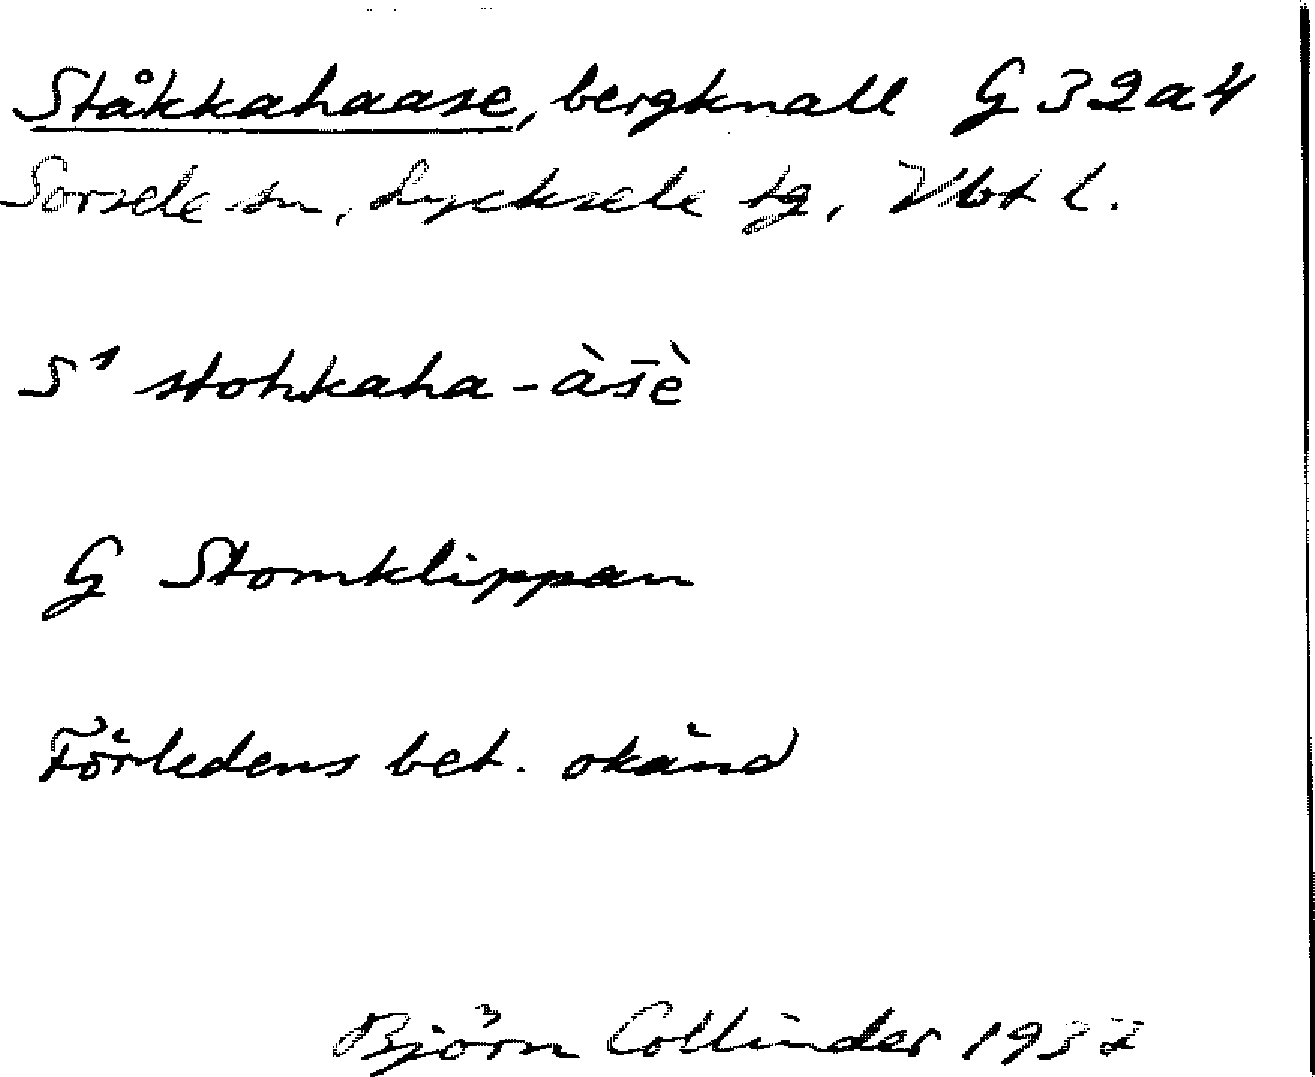 Ståkkahaase, bergknall G 32a4
Sorsele sn, Lycksele tg, Vbt l.
S¹ stohkaha-às̄è
G Stomklippan
Förledens bet. okänd
Björn Collinder 1932